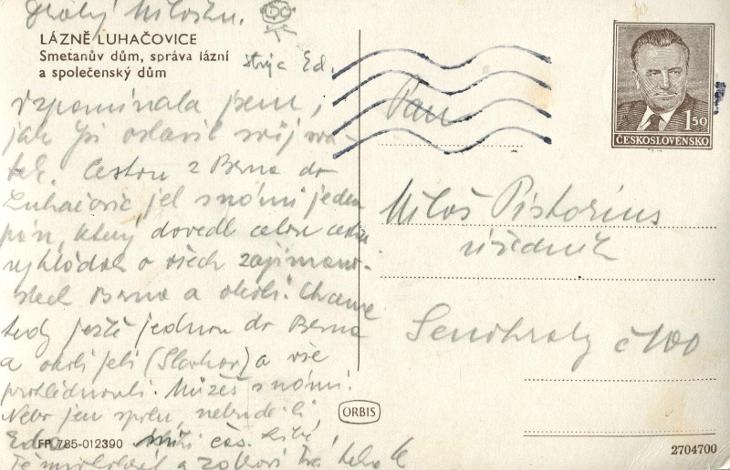 Drahý Miloslu.
LÁZNĚ LUHAČOVICE
Smetanův dům, správa lázní
a společenský dům
strýc Ed.
vzpomínala jsem,
jak jsi oslavil svůj svá-
tek. Cestou z Brna do
Luhačovic jel s námi jeden
pán, který dovedl celou cestu
vykládat o všech zajímavo-
stech Brna a okolí. Chceme
tedy ještě jednou do Brna
a okolí jeti (Slavkov) a vše
prohlédnouti. Můžeš s námi.
Nebo jen spolu, nebude-li
Eda čas.
FP 785-012390
a
ORBIS
1.50
ČESKOSLOVENSKO
Pan
Miloš Pistorius
úředník
Senohraby č 100
2704700